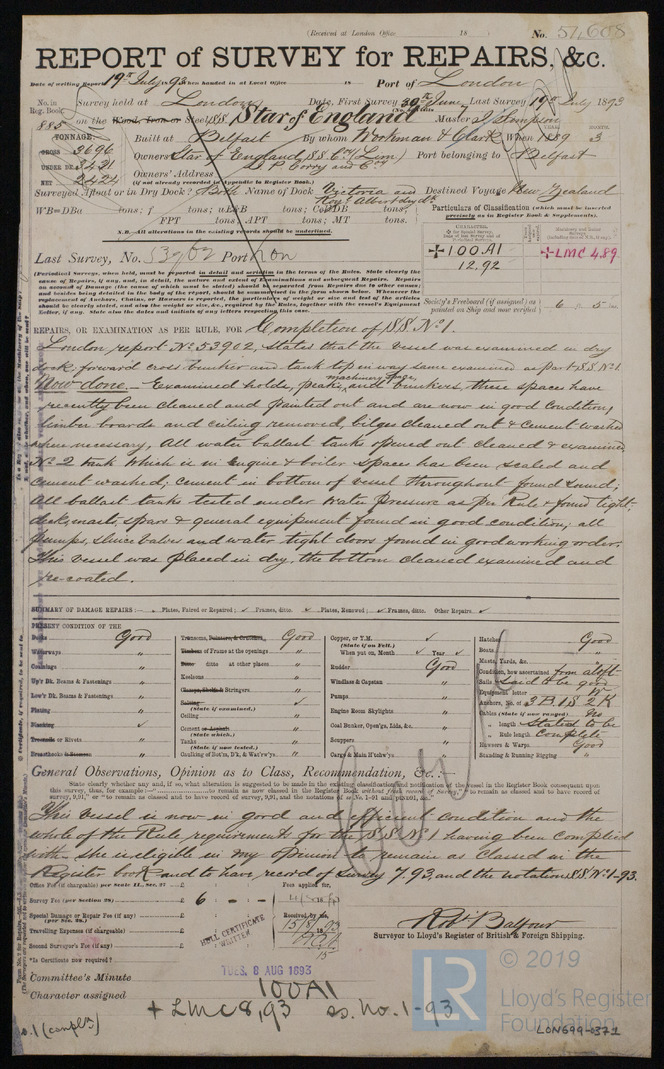 (Received at London Office 18 ) No. 51,608
REPORT of SURVEY for REPAIRS, &c.
Date of writing Report 19th July 1893 When handed in at Local Office 18 Port of London
No. in Reg. Book. Survey held at London Date, First Survey 30th June Last Survey 19th July 1893
885 on the Wood, Iron or Steel SS Star of England Master J. Simpson
TONNAGE.
GROSS 3696
UNDER DK 3421
NET 2424
Built at Belfast By whom Workman & Clark When 1889 MONTH. 3
Owners Star of England SS Co. (Lim) Port belonging to Belfast
Owners' Address J. P. Corry and Co.
(if not already recorded in Appendix to Register Book.)
Surveyed Afloat or in Dry Dock? Both Name of Dock Victoria and Royl. Albert dry dk. Destined Voyage New Zealand
WB=DBa tons; f tons; uE&B tons; CellDB tons;
FPT tons; APT tons; MT tons.
N.B.—All alterations in the existing records should be underlined.
Particulars of Classification (which must be inserted precisely as in Register Book & Supplements).
+100A1
12.92
+LMC 4.89
Last Survey, No. 53902 Port Lon
Society's Freeboard (if assigned) as painted on Ship and now verified 6 ft. 5 ins.
(Periodical Surveys, when held, must be reported in detail and seriatim in the terms of the Rules. State clearly the cause of Repairs, if any, and, in detail, the nature and extent of Examinations and subsequent Repairs.
REPAIRS, OR EXAMINATION AS PER RULE, FOR Completion of SS No 1.
London report No 53902, states that the vessel was examined in dry
dock; forward cross bunker and tank top in way same examined as part SS No 1
Now done.— Examined holds, peaks, machinery space, and bunkers, these spaces have
recently been cleaned and painted out and are now in good condition,
limber boards and ceiling removed, bilges cleaned out & cement washed
where necessary, All water ballast tanks opened out cleaned & examined
No 2 tank which is in Engine & boiler spaces has been scaled and
cement washed; cement in bottom of vessel throughout found sound;
All ballast tanks tested under water pressure as per Rule & found tight.
deck, masts, spars & general equipment found in good condition, all
pumps, sluice valves and water tight doors found in good working order.
This vessel was placed in dry, the bottom cleaned examined and
re-coated.
SUMMARY OF DAMAGE REPAIRS:— Plates, Faired or Repaired; ✓ Frames, ditto. ✓ Plates, Renewed; ✓ Frames, ditto. Other Repairs. ✓
PRESENT CONDITION OF THE
Decks Good
Waterways "
Coamings "
Up'r Dk. Beams & Fastenings "
Low'r Dk. Beams & Fastenings "
Plating "
Planking ✓
Treenails or Rivets "
Breasthooks "
Transoms, Pointers, & Crutches, Good
Timbers of Frame at the openings "
Ditto ditto at other places "
Keelsons "
Clamps, Shelfs & Stringers. "
Salting ✓
(State if examined.)
Ceiling "
Cement or Asphalt "
(State which.)
Tanks "
(State if now tested.)
Caulking of Bot'm, D'k, & Wat'rw'ys "
Copper, or Y.M. ✓
(State if on Felt.)
When put on, Month ✓ Year ✓
Rudder Good
Windlass & Capstan "
Pumps "
Engine Room Skylights "
Coal Bunker, Open'gs, Lids, &c. "
Scuppers "
Cargo & Main H'tchw'ys "
Hatches Good
Boats "
Masts, Yards, &c. "
Condition, how ascertained from aloft
Sails Said to be good
Equipment letter W
Anchors, No. of 3B. 1S 2K
Cables (State if now ranged) No
" length Stated to be
" Rule length Complete
Hawsers & Warps Good
Standing & Running Rigging "
General Observations, Opinion as to Class, Recommendation, &c.:—
This vessel is now in good and efficient condition and the
whole of the Rule requirements for the SS No 1 having been complied
with she is eligible in my opinion to remain as classed in the
Register book and to have record of survey 7.93, and the notation SS No 1-93.
Office Fee (if chargeable) per Scale II., Sec. 27 £
Survey Fee (per Section 28) £ 6 - -
Special Damage or Repair Fee (if any) £
(per Sec. 28.)
Travelling Expenses (if chargeable) £
Second Surveyor's Fee (if any) £
Fees applied for,
Received by me,
15/8/1893
*Is Certificate now required?
HULL CERTIFICATE WRITTEN
Robt Balfour
Surveyor to Lloyd's Register of British & Foreign Shipping.
Committee's Minute TUES. 8 AUG 1893
Character assigned 100A1
+LMC 8,93 ss. No. 1-93
s.1 (compl3)
LR
© 2019
Lloyd's Register
Foundation
LON699-0371